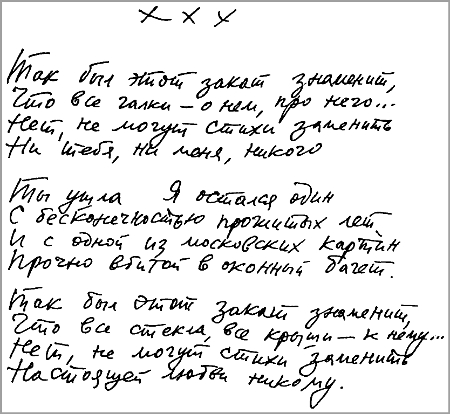 х х х
Так был этот закат знаменит,
Что все галки – о нём, про него...
Нет, не могут стихи заменить
Ни тебя, ни меня, никого
Ты ушла Я остался один
С бесконечностью прожитых лет
И с одной из московских картин
Прочно вбитой в оконный багет.
Так был этот закат знаменит,
Что все стекла, все крыши – к нему...
Нет, не могут стихи заменить
Настоящей любви никому.